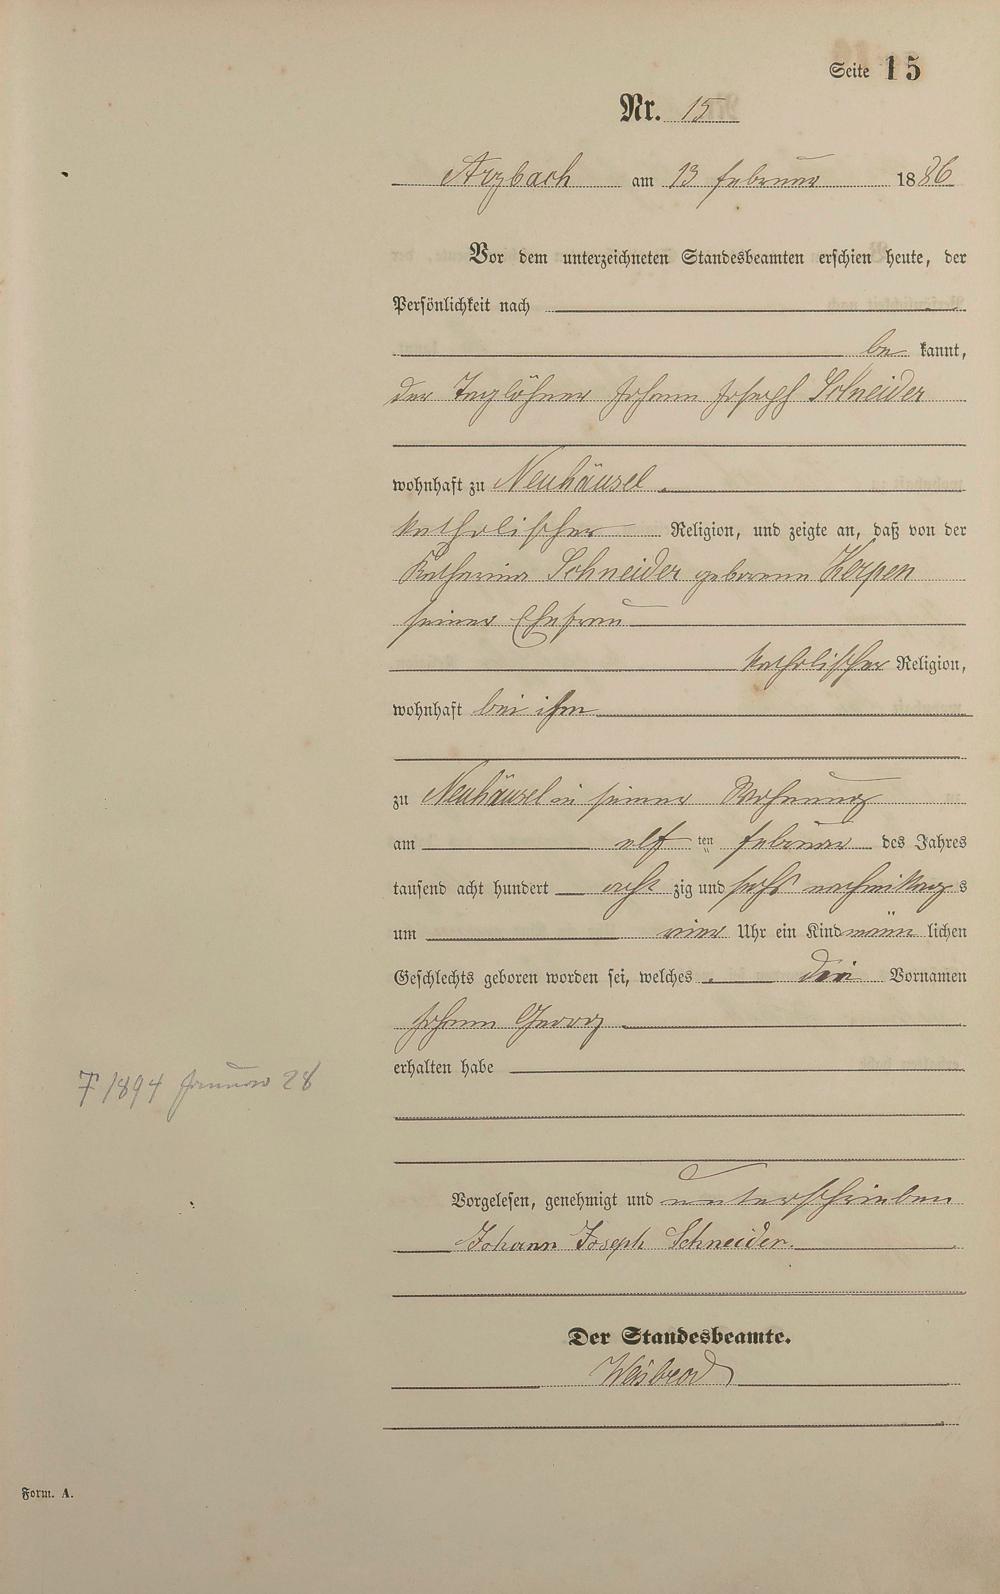 Seite 15
Nr. 15
Arzbach am 13 Februar 1886
Vor dem unterzeichneten Standesbeamten erschien heute, der
Persönlichkeit nach
be kannt,
der Taglöhner Johann Joseph Schneider
wohnhaft zu Neuhäusel.
katholischer Religion, und zeigte an, daß von der
Katharina Schneider geborene Kerpen
seiner Ehefrau
katholischer Religion,
wohnhaft bei ihm
zu Neuhäusel in seiner Wohnung
am elf ten Februar des Jahres
tausend acht hundert acht zig und sechs nachmittag s
um vier Uhr ein Kind männ lichen
Geschlechts geboren worden sei, welches die Vornamen
Johann Georg
erhalten habe
† 1894 Januar 28
Vorgelesen, genehmigt und unterschrieben
Johann Joseph Schneider.
Der Standesbeamte.
Weisbrod
Form. A.